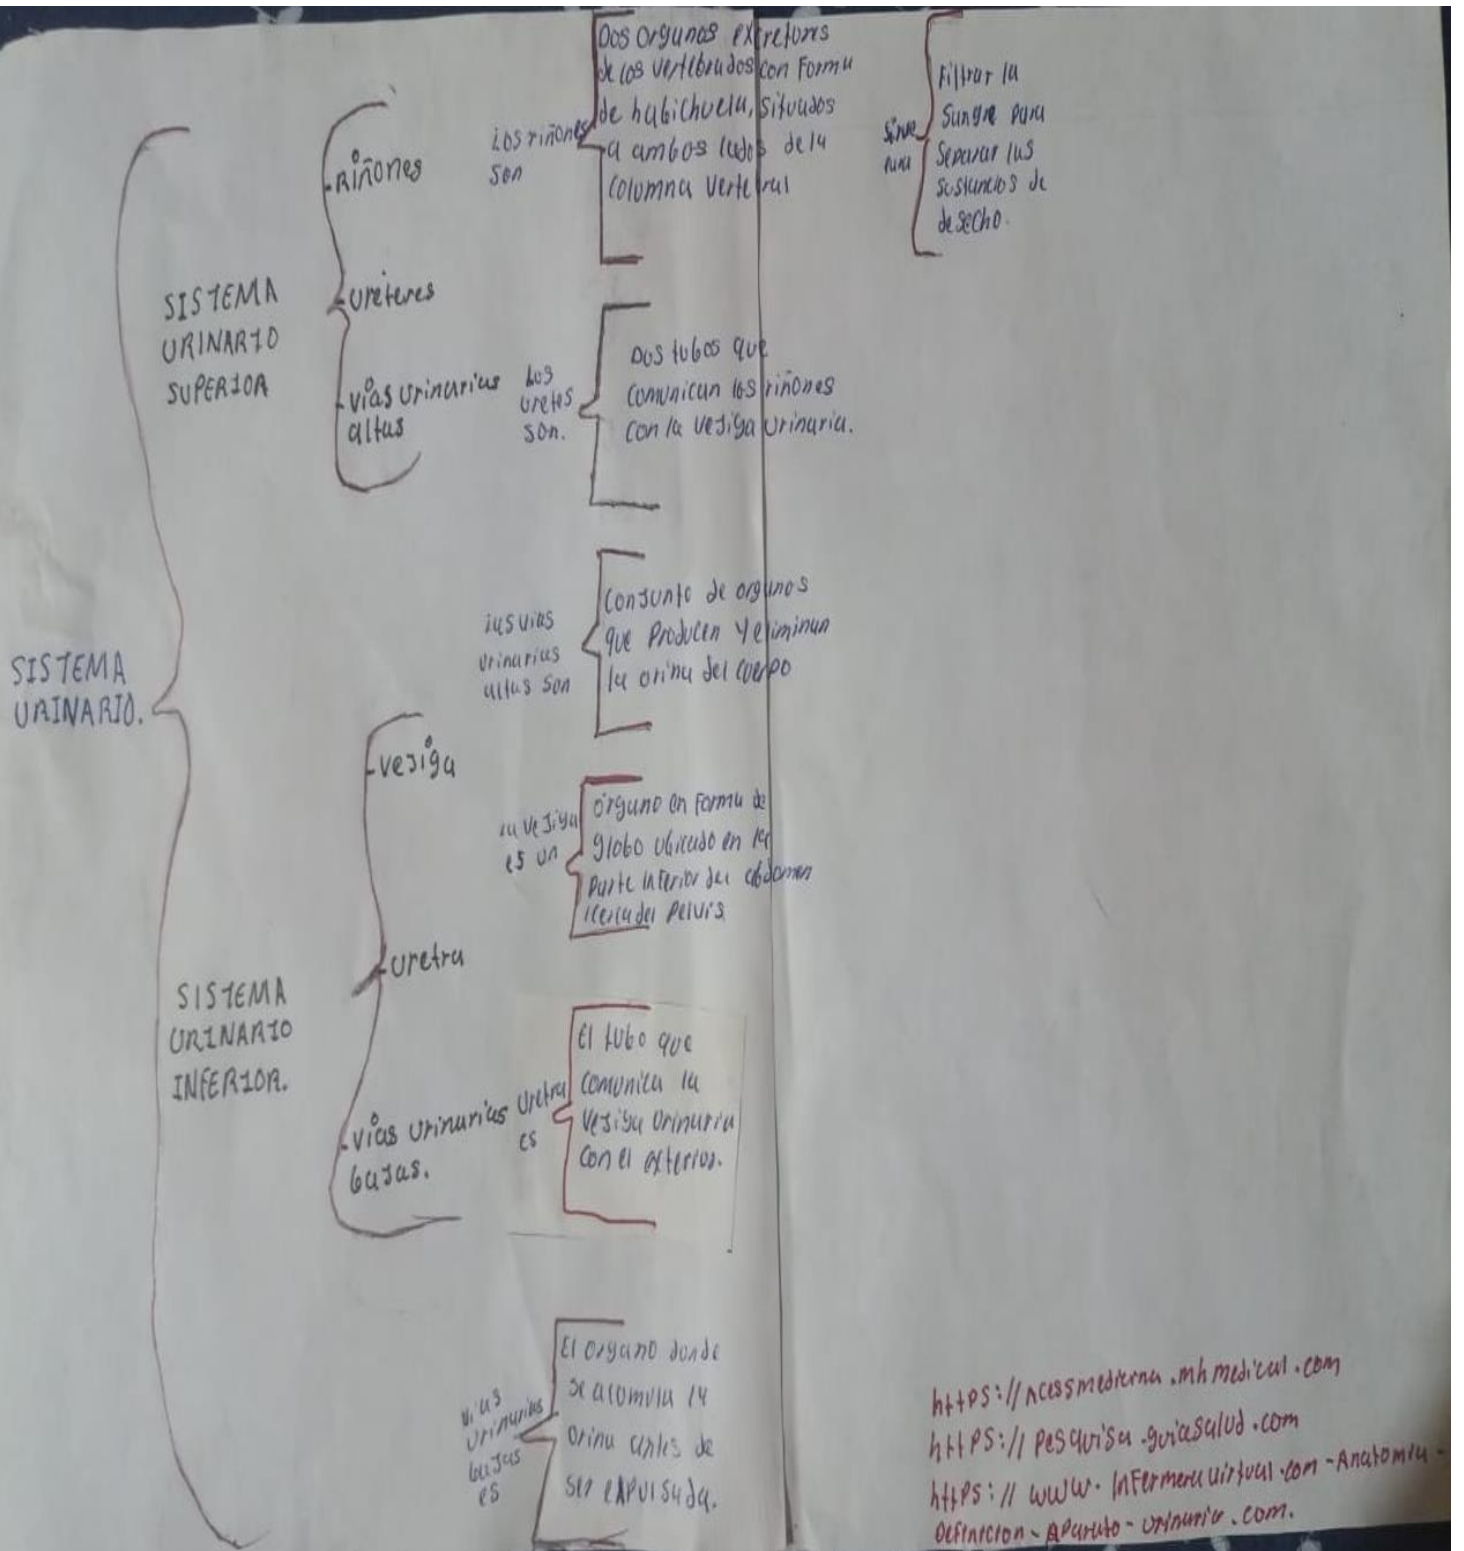 SISTEMA
URINARIO.
SISTEMA
URINARIO
SUPERIOR
-Riñones
-Uréteres
-Vías Urinarias
altas
Los riñones
son
Dos organos excretores
de los vertebrados con forma
de habichuela, situados
a ambos lados de la
columna vertebral
sirve
para
Filtrar la
Sangre para
Separar las
sustancias de
desecho.
Los
uretes
son.
Dos tubos que
comunican los riñones
con la vejiga urinaria.
las vias
urinarias
altas son
Conjunto de organos
que Producen y eliminan
la orina del cuerpo
SISTEMA
URINARIO
INFERIOR.
-vejiga
-uretra
-vías urinarias
bajas.
la vejiga
es un
órgano en forma de
globo ubicado en la
parte inferior del abdomen
cerca del pelvis
Uretra
es
El tubo que
comunica la
vejiga urinaria
con el exterior.
vias
urinarias
bajas
es
El organo donde
se acomula la
orina antes de
ser expulsada.
https://Acessmedicina.mhmedical.com
https://pesquisa.guiasalud.com
https://www.Infermeravirtual.com-Anatomia-
Definicion-Aparato-urinario.com.